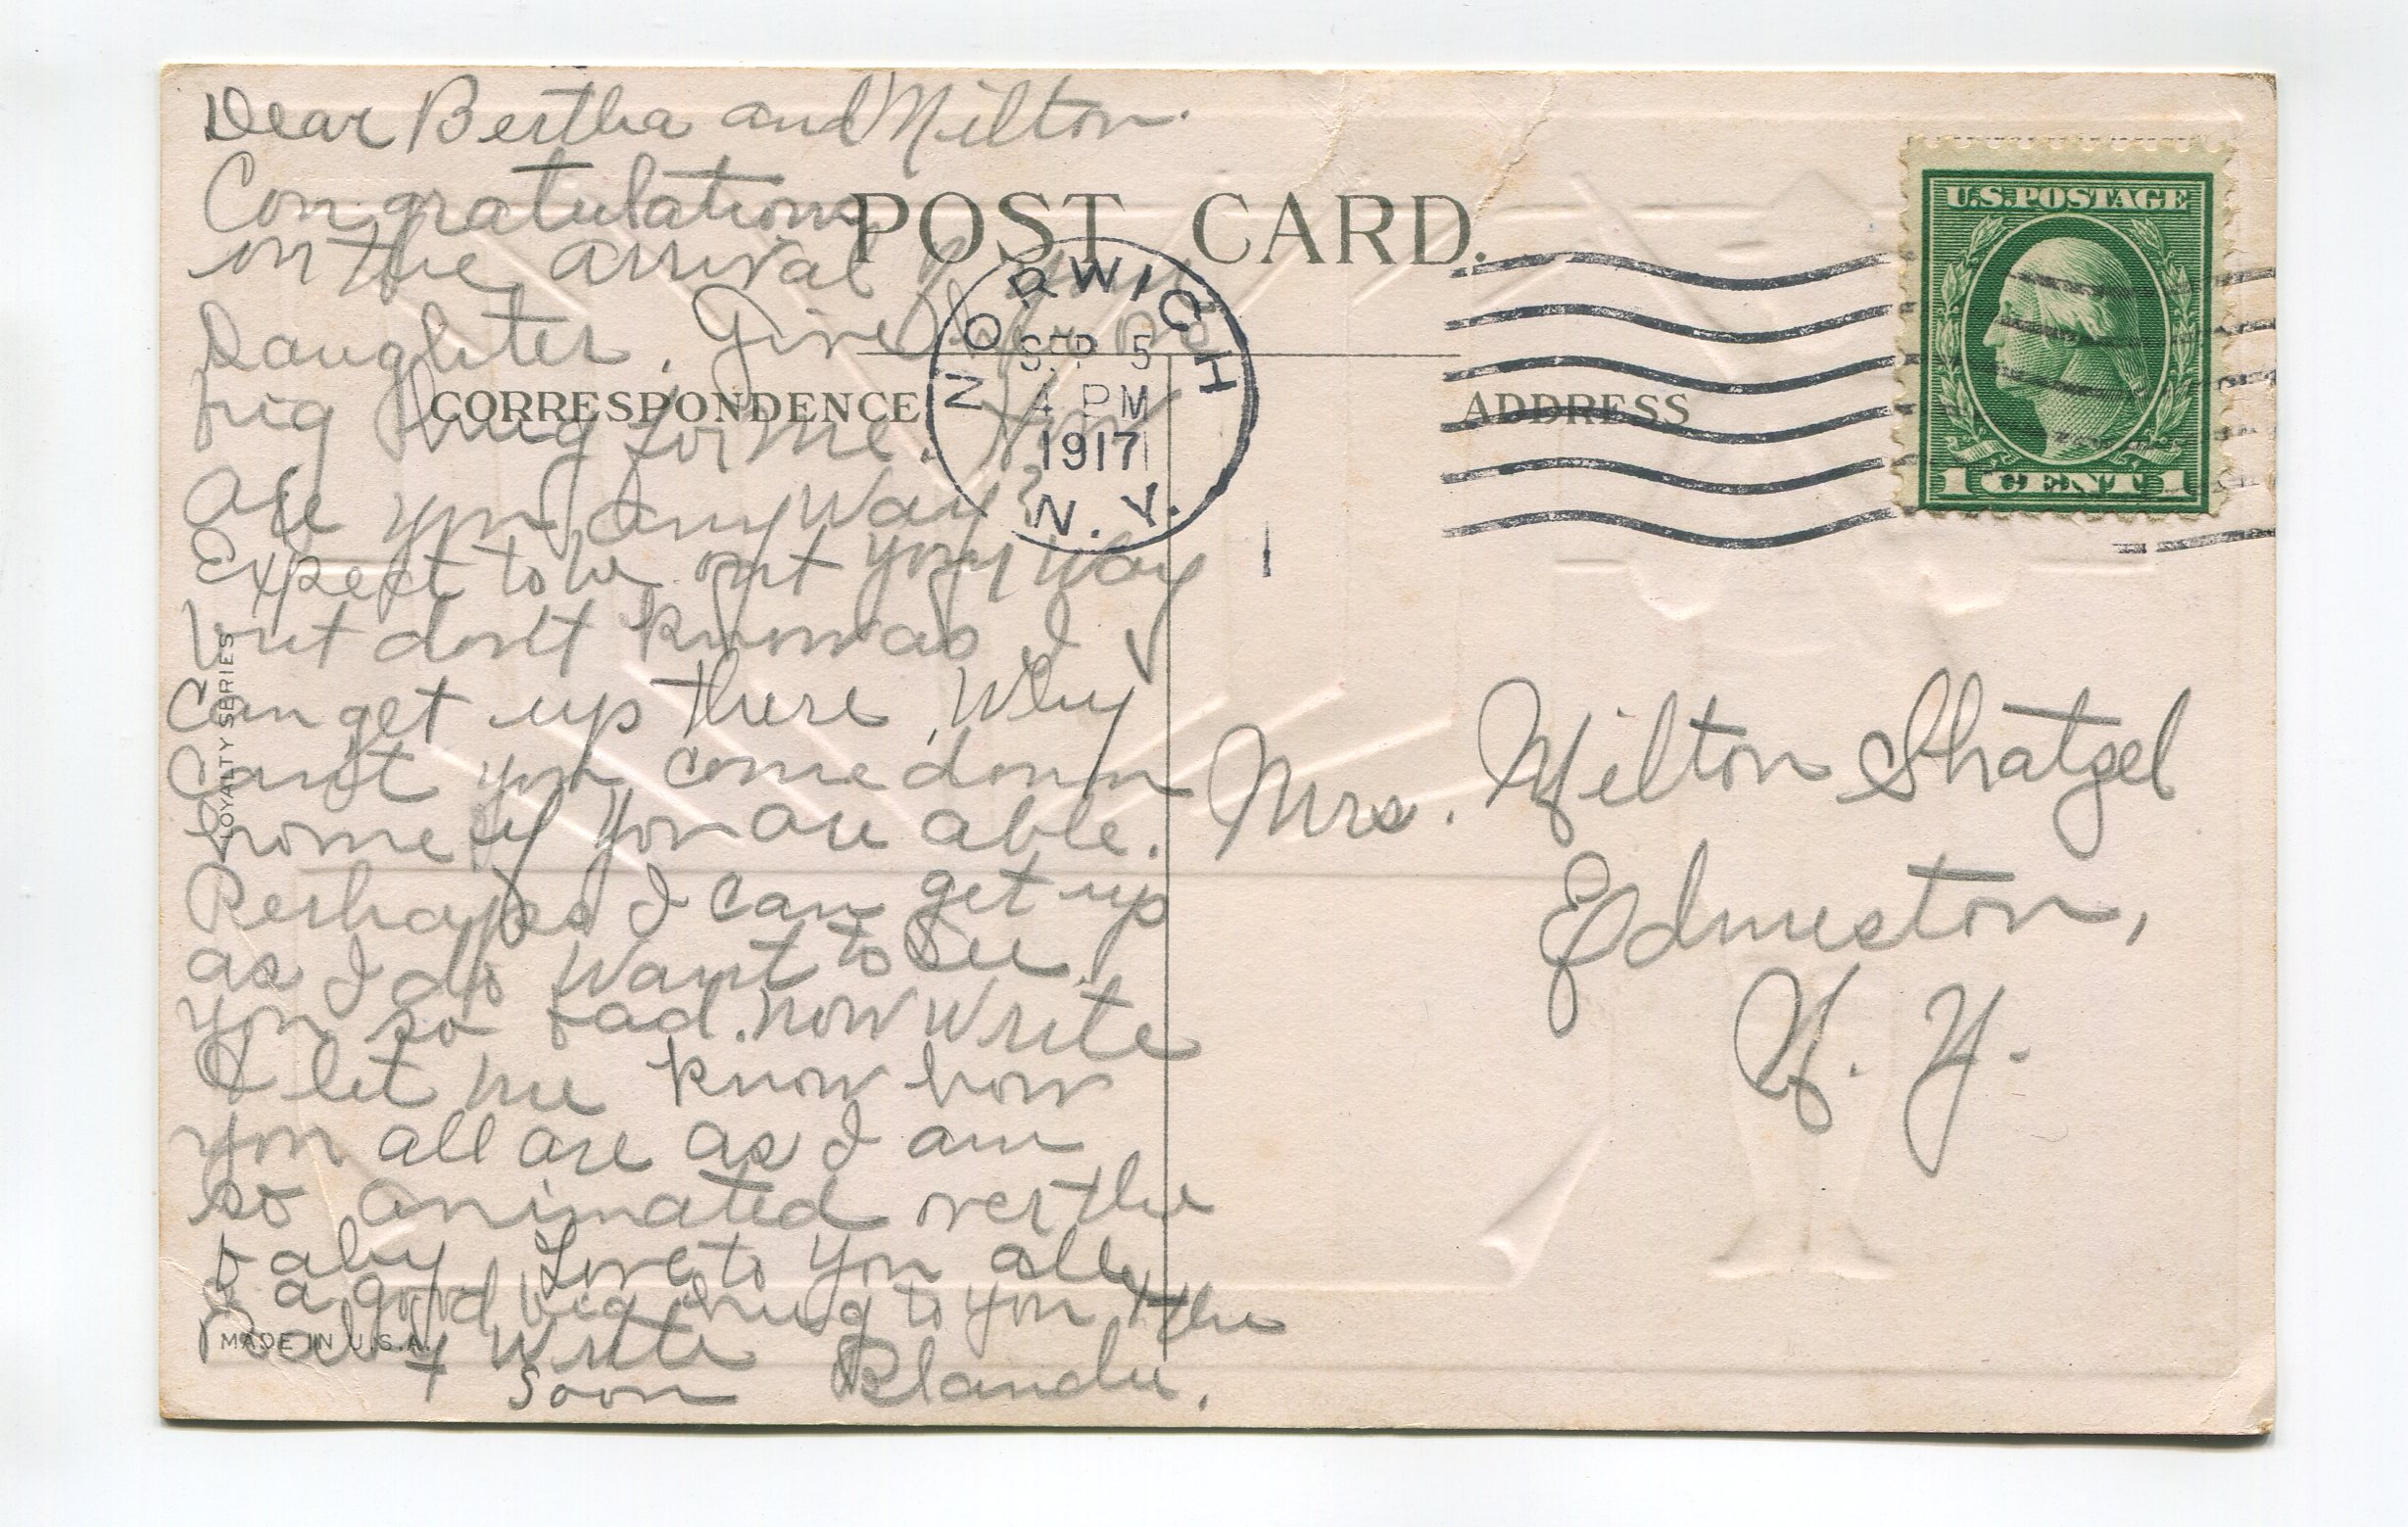 Dear Bertha and Milton.
Congratulations
on the arrival of your
Daughter. Give her a
big hug for me. How
are you anyway?
Expect to be out your way
but don't know as I
can get up there. Why
can't you come down
home if you are able.
Perhaps I can get up
as I do want to see
you so bad. now write
& let me know how
you all are as I am
so animated over the
baby. Love to you all
& a good big hug to you & the
baby & write
soon Blanche.
POST CARD.
CORRESPONDENCE
ADDRESS
NORWICH
SEP 5
4 PM
1917
N. Y.
U.S. POSTAGE
1 CENT 1
Mrs. Milton Shatzel
Edmeston,
N. Y.
LOYALTY SERIES
MADE IN U.S.A.